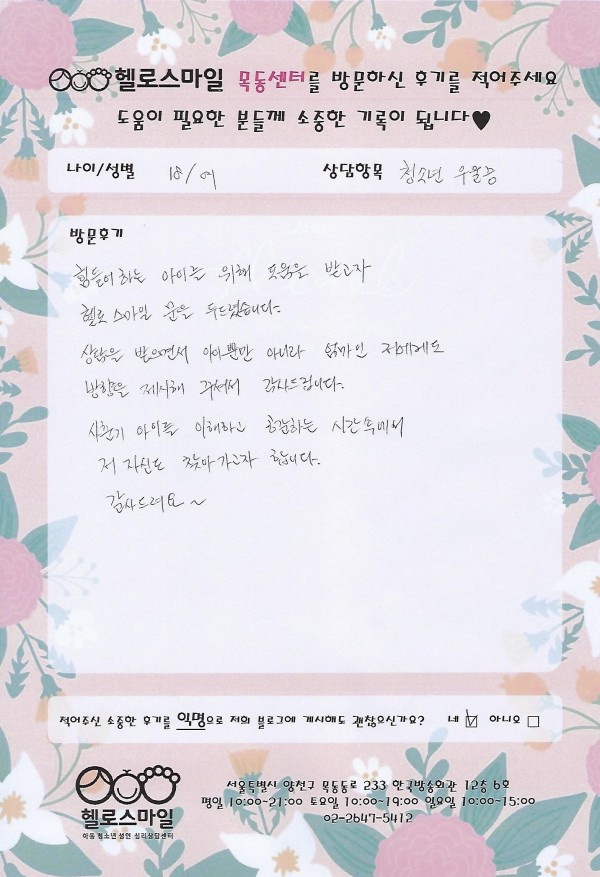 헬로스마일 목동센터를 방문하신 후기를 적어주세요
도움이 필요한 분들께 소중한 기록이 됩니다♥
나이/성별 18/여 상담항목 청소년 우울증
방문후기
힘들어 하는 아이를 위해 도움을 받고자
헬로 스마일 문을 두드렸습니다.
상담을 받으면서 아이뿐만 아니라 엄마인 저에게도
방향을 제시해 주셔서 감사드립니다.
사춘기 아이를 이해하고 공감하는 시간속에서
저 자신도 찾아가고자 합니다.
감사드려요~
적어주신 소중한 후기를 익명으로 저희 블로그에 게시해도 괜찮으신가요? 네 ☑ 아니오 □
헬로스마일
아동 청소년 성인 심리상담센터
서울특별시 양천구 목동동로 233 한국방송회관 12층 6호
평일 10:00~21:00 토요일 10:00~19:00 일요일 10:00~15:00
02-2647-5412